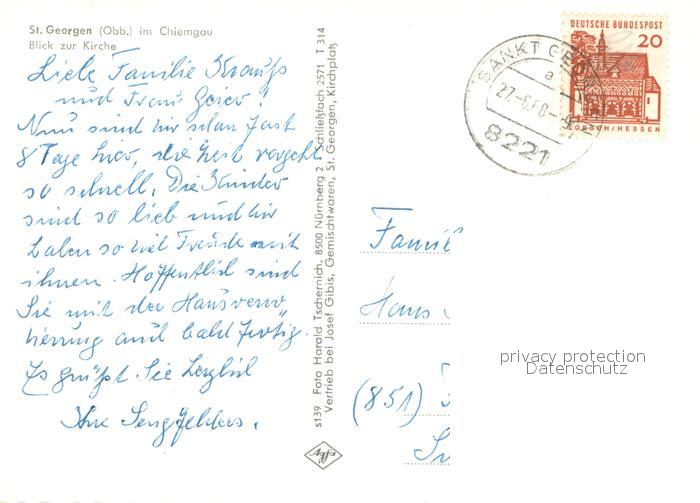 St. Georgen (Obb.) im Chiemgau
Blick zur Kirche
Liebe Familie Krauß
und Frau Geier!
Nun sind wir schon fast
8 Tage hier, die Zeit vergeht
so schnell. Die Kinder
sind so lieb und wir
haben so viel Freude mit
ihnen. Hoffentlich sind
Sie mit der Hausreno
vierung auch bald fertig.
Es grüßt Sie herzlich
Ihre Sengfelders.
s139 Foto Harald Tschernich, 8500 Nürnberg 2 Schließfach 2571 T 314
Vertrieb bei Josef Gibis, Gemischtwaren, St. Georgen, Kirchplatz
Agfa
DEUTSCHE BUNDESPOST
20
LORSCH/HESSEN
SANKT GEO
a
27.-6.68
8221
Famil
Hans
(851)
privacy protection
Datenschutz